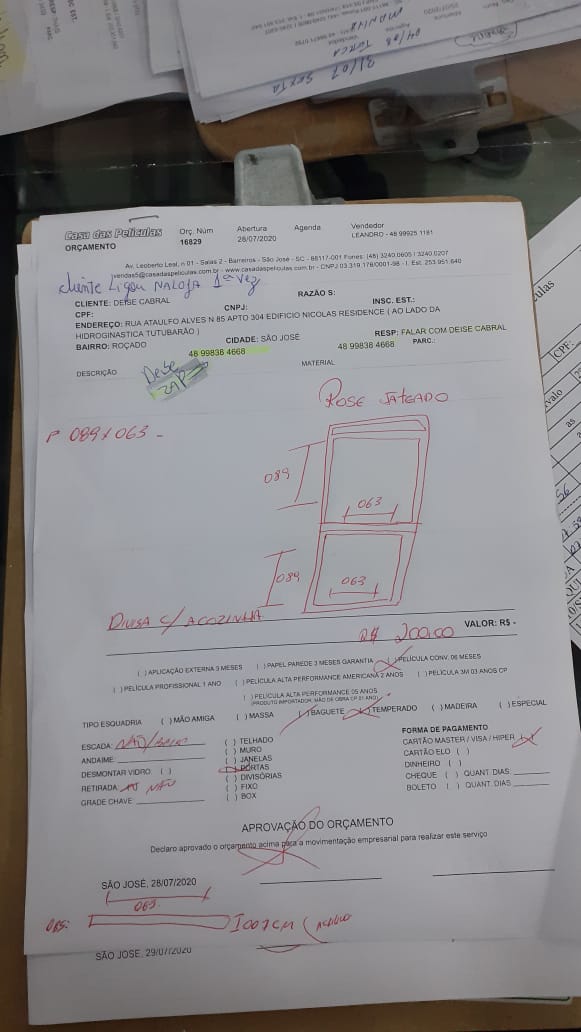 31/07 SEXTA
04/08 TERCA
MANHÃ
Casa das Películas
ORÇAMENTO
Orç. Núm
16829
Abertura
28/07/2020
Agenda
Vendedor
LEANDRO - 48 99925 1181
Av. Leoberto Leal, n 01 - Salas 2 - Barreiros - São José - SC - 88117-001 Fones: (48) 3240.0605 / 3240.0207
vendas5@casadaspeliculas.com.br - www.casadaspeliculas.com.br - CNPJ 03.319.176/0001-98 - I. Est. 253.951.640
Cliente Ligou NA LOJA 1ª vez
CLIENTE: DEISE CABRAL
RAZÃO S:
CPF:
CNPJ:
INSC. EST.:
ENDEREÇO: RUA ATAULFO ALVES N 85 APTO 304 EDIFICIO NICOLAS RESIDENCE ( AO LADO DA
HIDROGINASTICA TUTUBARÃO )
BAIRRO: ROÇADO
CIDADE: SÃO JOSÉ
RESP: FALAR COM DEISE CABRAL
48 99838 4668
48 99838 4668
PARC.:
DESCRIÇÃO
Deise
ZAP
MATERIAL
ROSE JATEADO
P 089 X 063 -
089
063
089
063
DIVISA C/ A COZINHA
R$ 200,00
VALOR: R$ -
( ) APLICAÇÃO EXTERNA 3 MESES ( ) PAPEL PAREDE 3 MESES GARANTIA ( ) PELÍCULA CONV. 06 MESES
( ) PELÍCULA PROFISSIONAL 1 ANO ( ) PELÍCULA ALTA PERFORMANCE AMERICANA 2 ANOS ( ) PELÍCULA 3M 03 ANOS CP
( ) PELÍCULA ALTA PERFORMANCE 05 ANOS
(PRODUTO IMPORTADOR, MÃO DE OBRA CP 01 ANO)
TIPO ESQUADRIA ( ) MÃO AMIGA ( ) MASSA ( ) BAGUETE ( ) TEMPERADO ( ) MADEIRA ( ) ESPECIAL
ESCADA: NÃO
ANDAIME:
DESMONTAR VIDRO ( )
RETIRADA NÃO
GRADE CHAVE
( ) TELHADO
( ) MURO
( ) JANELAS
( ) PORTAS
( ) DIVISÓRIAS
( ) FIXO
( ) BOX
FORMA DE PAGAMENTO
CARTÃO MASTER / VISA / HIPER
CARTÃO ELO ( )
DINHEIRO ( )
CHEQUE ( ) QUANT DIAS
BOLETO ( ) QUANT. DIAS
APROVAÇÃO DO ORÇAMENTO
Declaro aprovado o orçamento acima para a movimentação empresarial para realizar este serviço
SÃO JOSÉ, 28/07/2020
063
OBS:
SÃO JOSE, 29/07/2020